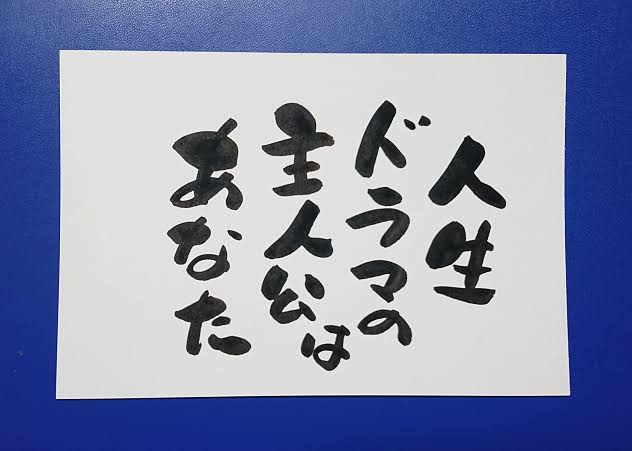 人生
ドラマの
主人公は
あなた